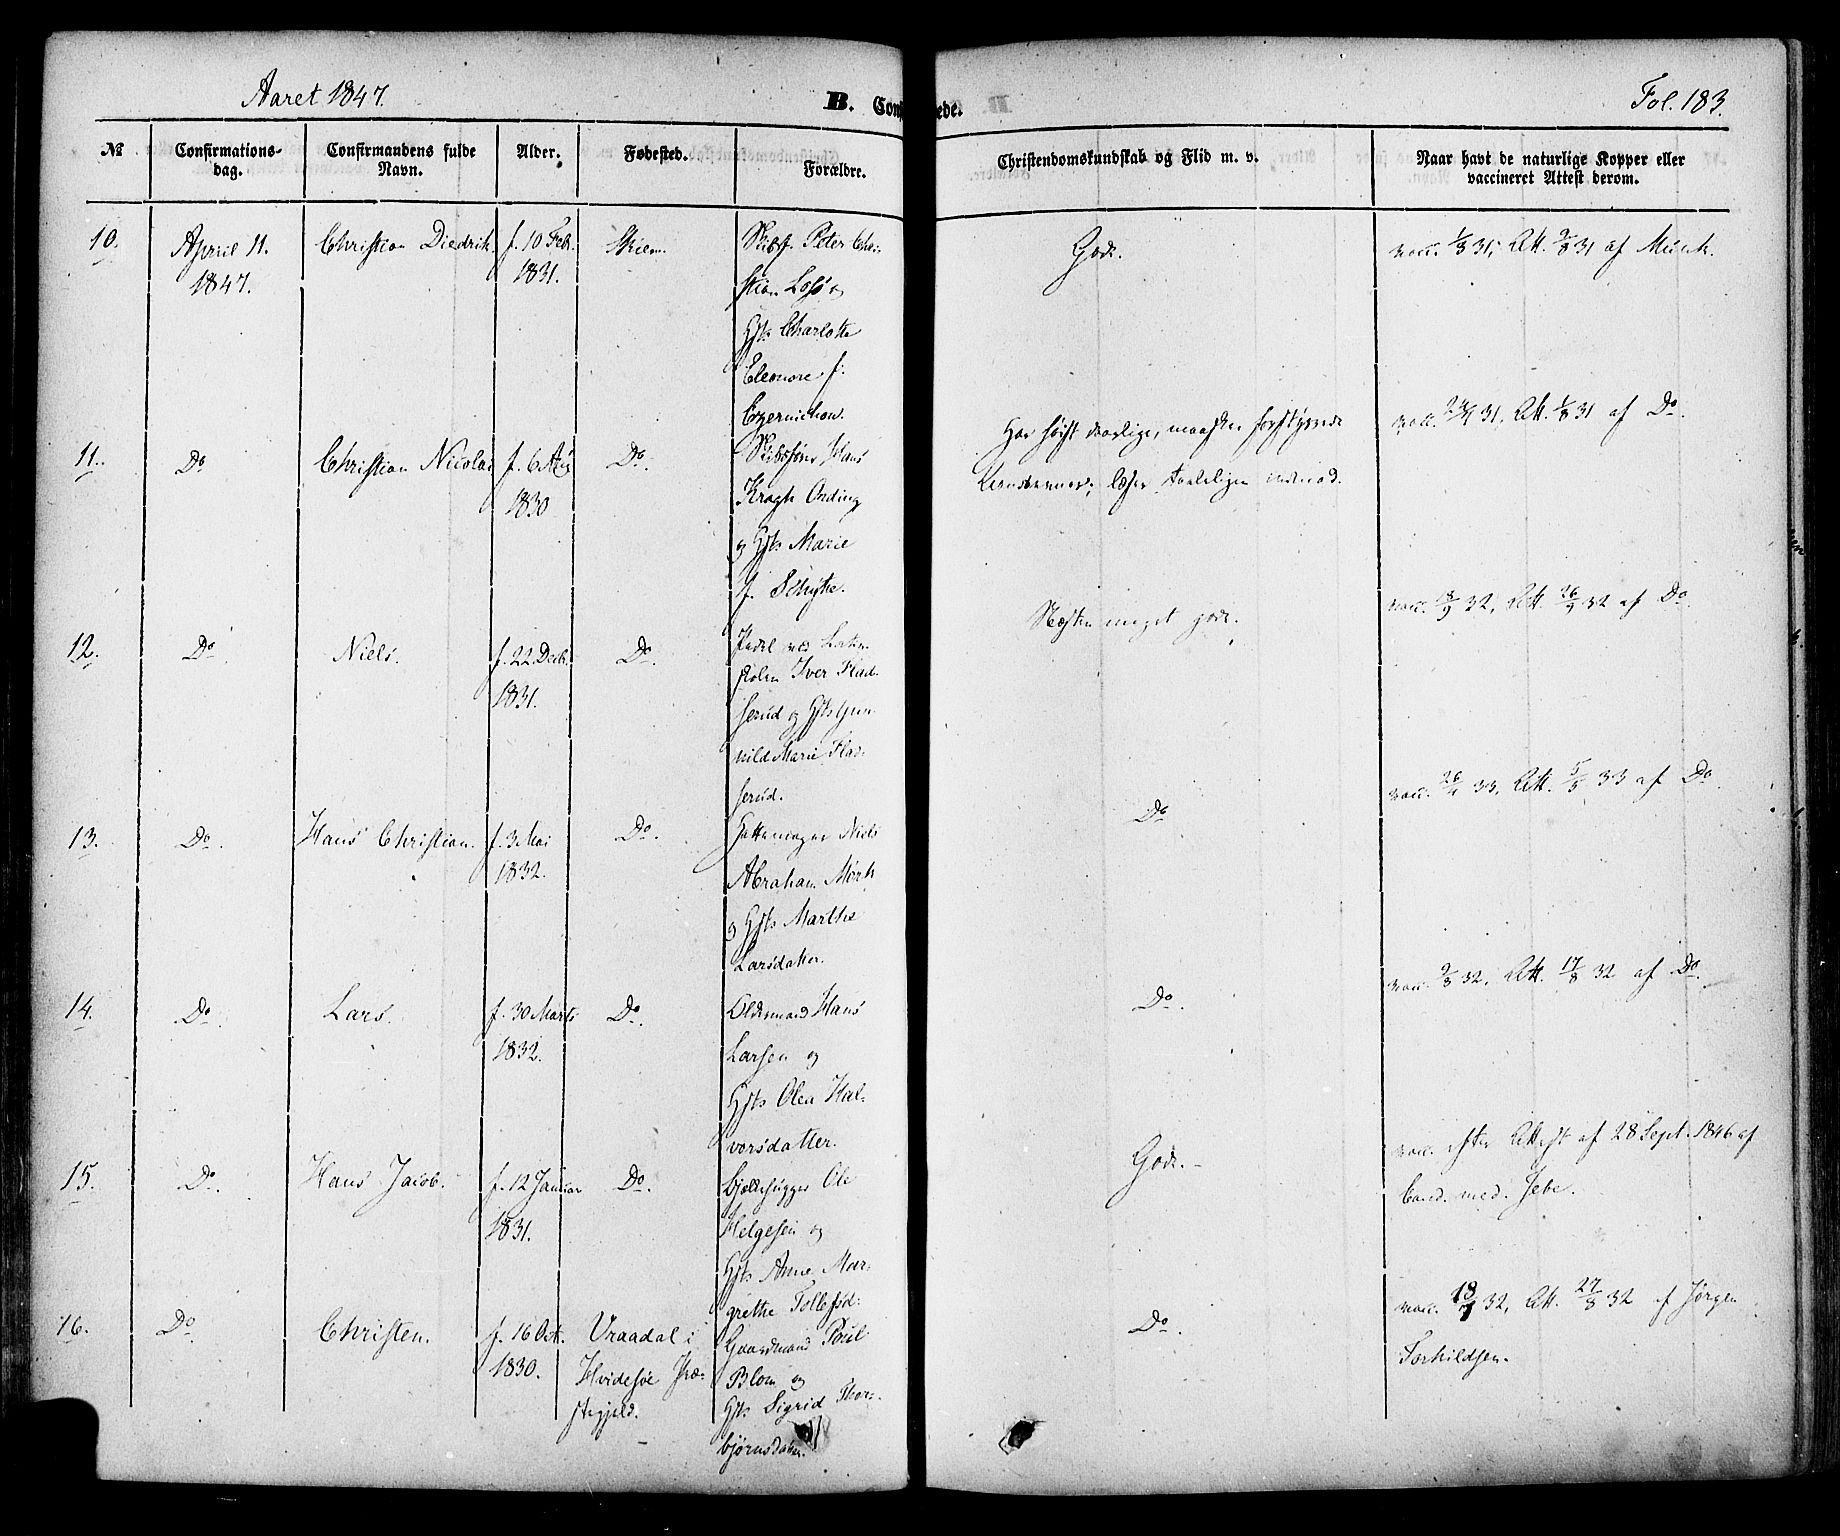 Aaret 1847.
B. Conf
ede.
Fol. 183.
№
Confirmations-
dag.
Confirmandens fulde
Navn.
Alder.
Fødested.
Forældre.
Christendomskundskab og Flid m. v.
Naar havt de naturlige Kopper eller
vaccineret Attest derom.
10.
April 11.
1847.
Christian Diedrik.
f. 10 Feb.
1831.
Skien.
Skibsf. Peter Chri-
stian Losø og
Hst. Charlotte
Eleonore f.
God.
vacc. 1/8 31, Att. 9/8 31 af Munk.
11.
Do
Christian Nicolai
f. 6 Aug
1830
Do.
Skibsfører Hans
Kragh Ording
og Hst. Marie
f. Schytte.
Har høist daarlige, maaskee
læser taalelige
vacc. 24/4 31, Att. 1/8 31 af Do.
12.
Do
Niels.
f. 22 Decb.
1831.
Do.
Pedel ved Latin-
skolen Iver Flad-
serud og Hst Gun-
nild Marie Flad-
serud.
Næsten meget god.
vacc. 18/9 32, Att. 26/9 32 af Do.
13.
Do.
Hans Christian.
f. 3 Mai
1832.
Do.
Hattemager Niels
Abraham Mørk
og Hst. Marthe
Larsdatter.
Do
vacc. 26/4 33, Att. 5/5 33 af Do.
14.
Do.
Lars.
f. 30 Marts
1832.
Do.
Oldermand Hans
Larsen og
Hst. Olea Hal-
vorsdatter.
Do.
vacc. 9/8 32, Att. 17/8 32 af Do.
15.
Do.
Hans Jacob.
f. 12 Januar
1831.
Do.
Bjelkehugger Ole
Helgesen og
Hst. Anne Mar-
grethe Tollefsd:
God.
vacc. efter Attest af 28 Sept. 1846 af
Cand. med. Jebe.
16.
Do
Christen.
f. 16 Oct.
1830.
Vraadal i
Hvidesøe Præ-
stegjeld.
Gaardmand Poul
Blom og
Hst. Sigrid Thor-
bjørnsdatter.
Do.
vacc. 32, Att. 27/8 32 af Jørgen
Torkildsen.